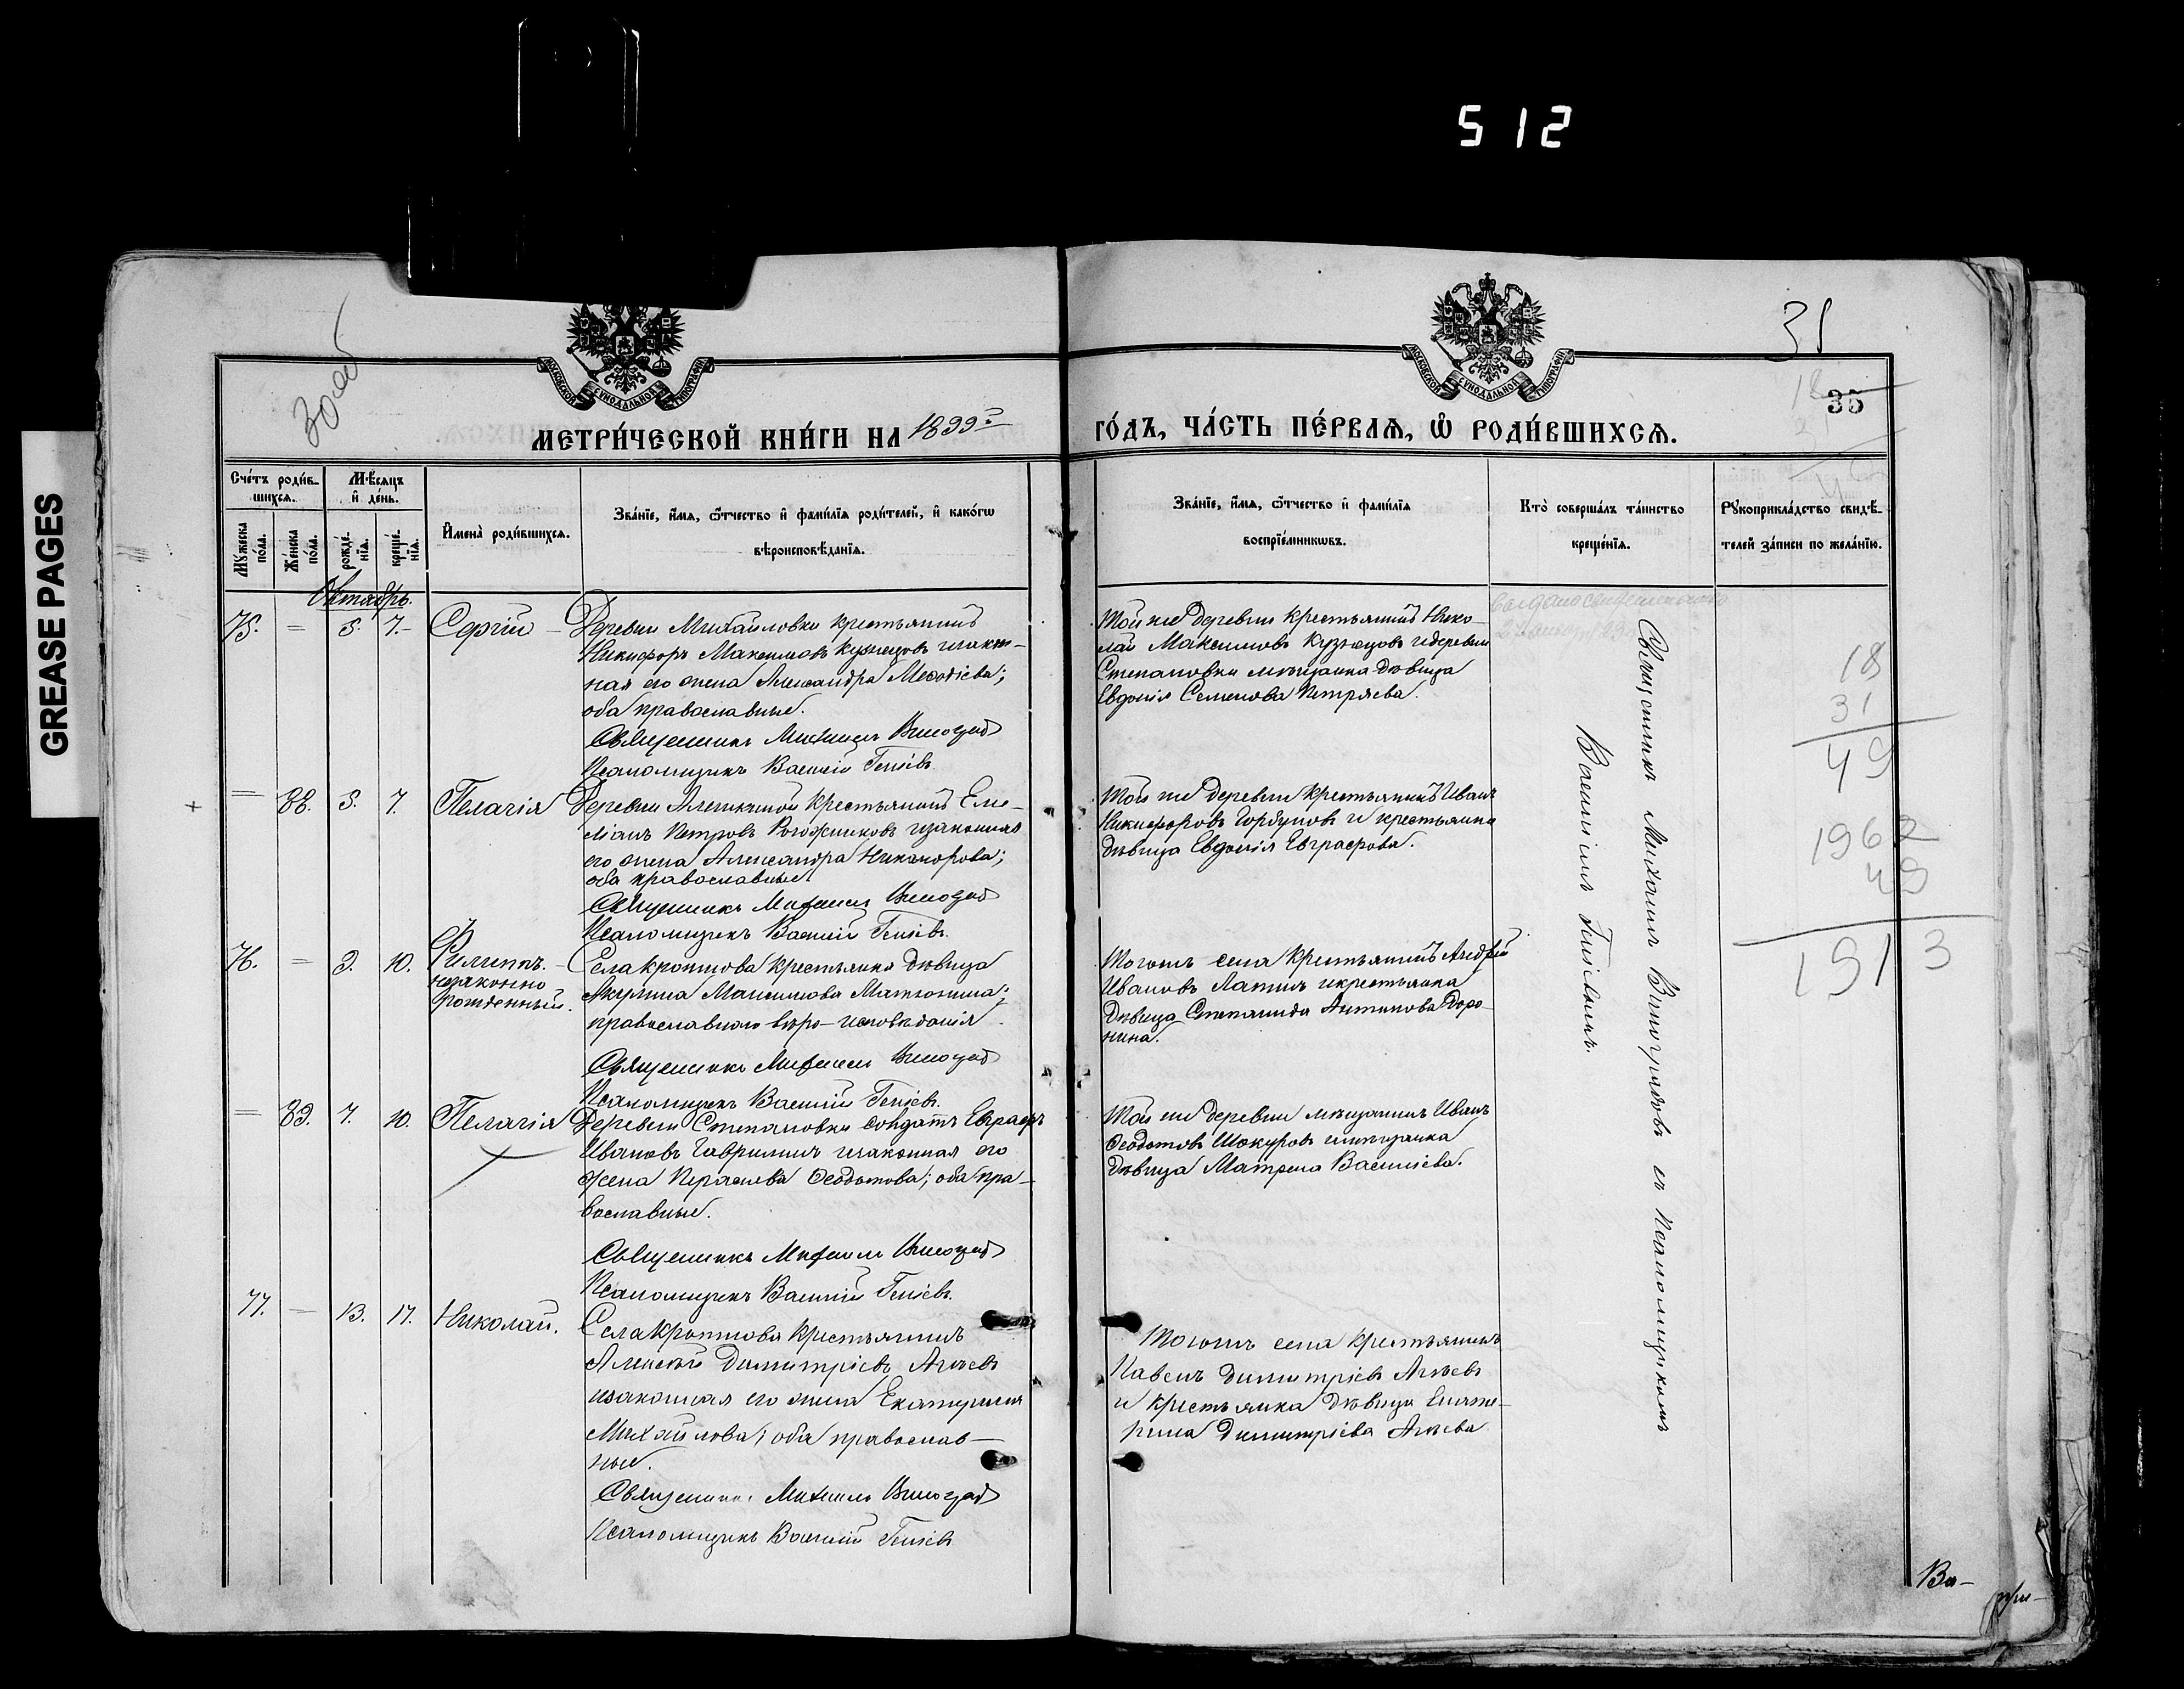 512
GREASE PAGES
31
35
МОСКОВСКОЙ СѴНОДАЛЬНОЙ ТИПОГРАФІИ
МОСКОВСКОЙ СѴНОДАЛЬНОЙ ТИПОГРАФІИ
МЕТРИ́ЧЕСКОЙ КНИ́ГИ НА 1899
ГО́ДЪ, ЧА́СТЬ ПЕ́РВАѦ, Ѽ РОДИ́ВШИХСѦ.
Сче́тъ роди́в-
шихсѧ.
Мѣ́сѧцъ
и҆ де́нь.
Мꙋ́жеска по́ла.
Же́нска по́ла.
рожде́-
нїѧ.
креще́-
нїѧ.
И҆мена̀ роди́вшихсѧ.
Зва́нїе, и҆́мѧ, ѻ҆́тчество и҆ фами́лїѧ роди́телей, и҆ како́гѡ
вѣроисповѣ́данїѧ.
Зва́нїе, и҆́мѧ, ѻ҆́тчество и҆ фами́лїѧ
воспрїе́мникѡвъ.
Кто̀ соверша́лъ та́инство
креще́нїѧ.
Рꙋкоприкла́дство свидѣ́-
телей за́писи по жела́нїю.
Октябрь.
75. = 5. 7. Сергій
Деревни Михайловки крестьянинъ
Никифоръ Максимовъ Кузнецовъ и закон-
ная его жена Александра Меѳодіева;
оба православные.
Священникъ Михаилъ Виноградовъ
Псаломщикъ Василій
Той же деревни крестьянинъ Нико-
лай Максимовъ Кузнецовъ и деревни
Степановки мѣщанка дѣвица
Евдокія Семенова Петряева.
= 88. 5. 7. Пелагія
Деревни крестьянинъ Еме-
ліанъ Петровъ Рогожниковъ и законная
его жена Александра Никанорова;
оба православные.
Священникъ Михаилъ Виноградовъ
Псаломщикъ Василій
Той же деревни крестьянинъ Иванъ
Никифоровъ Горбуновъ и крестьянка
дѣвица Евдокія Евграфова.
76. = 9. 10. Филиппъ.
незаконно
рожденный.
Села Кроткова крестьянка дѣвица
Акулина Максимова Матюнина;
православнаго вѣро-исповѣданія.
Священникъ Михаилъ Виноградовъ
Псаломщикъ Василій
Тогоже села крестьянинъ Андрей
Ивановъ Лапинъ и крестьянка
дѣвица Степанида Антипова Доро-
нина.
= 89. 7. 10. Пелагія
Деревни Степановки солдатъ Евграфъ
Ивановъ Гавриловъ и законная его
жена Параскева Ѳеодотова; оба пра-
вославные.
Священникъ Михаилъ Виноградовъ
Псаломщикъ Василій
Той же деревни мѣщанинъ Иванъ
Ѳеодотовъ Шокуровъ и мѣщанка
дѣвица Матрона Василіева.
77. = 13. 17. Николай.
Села Кроткова крестьянинъ
Алексѣй Димитріевъ Агѣевъ
и законная его жена Екатерина
Михайлова; оба православ-
ные.
Священникъ Михаилъ Виноградовъ
Псаломщикъ Василій
Тогоже села крестьянинъ
Павелъ Димитріевъ Агѣевъ
и крестьянка дѣвица Екате-
рина Димитріева Агѣева
Священникъ Михаилъ Виноградовъ съ псаломщикомъ
Василіемъ
18
31
49
1962
49
1913